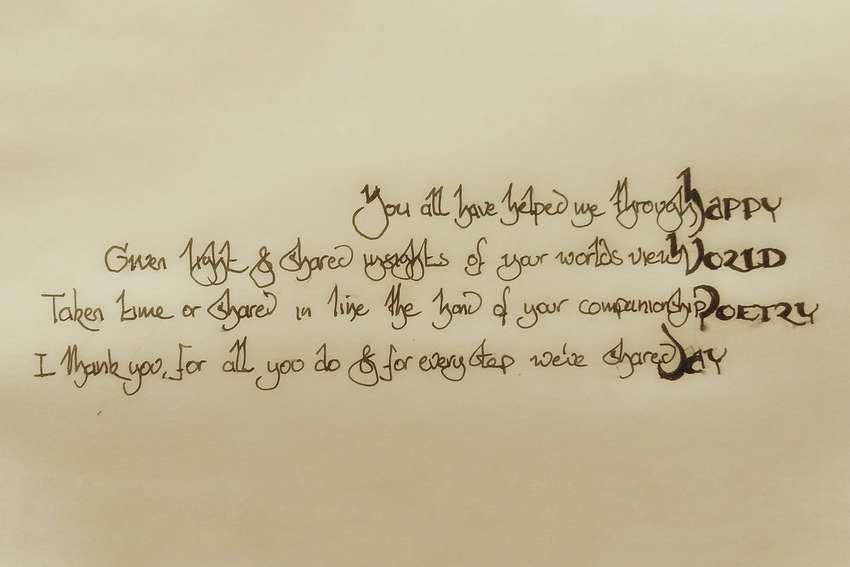 You all have helped me through HAPPY
Given light & shared insights of your worlds view WORLD
Taken time or shared in line the hand of your companionship POETRY
I thank you, for all you do & for every step we've shared DAY